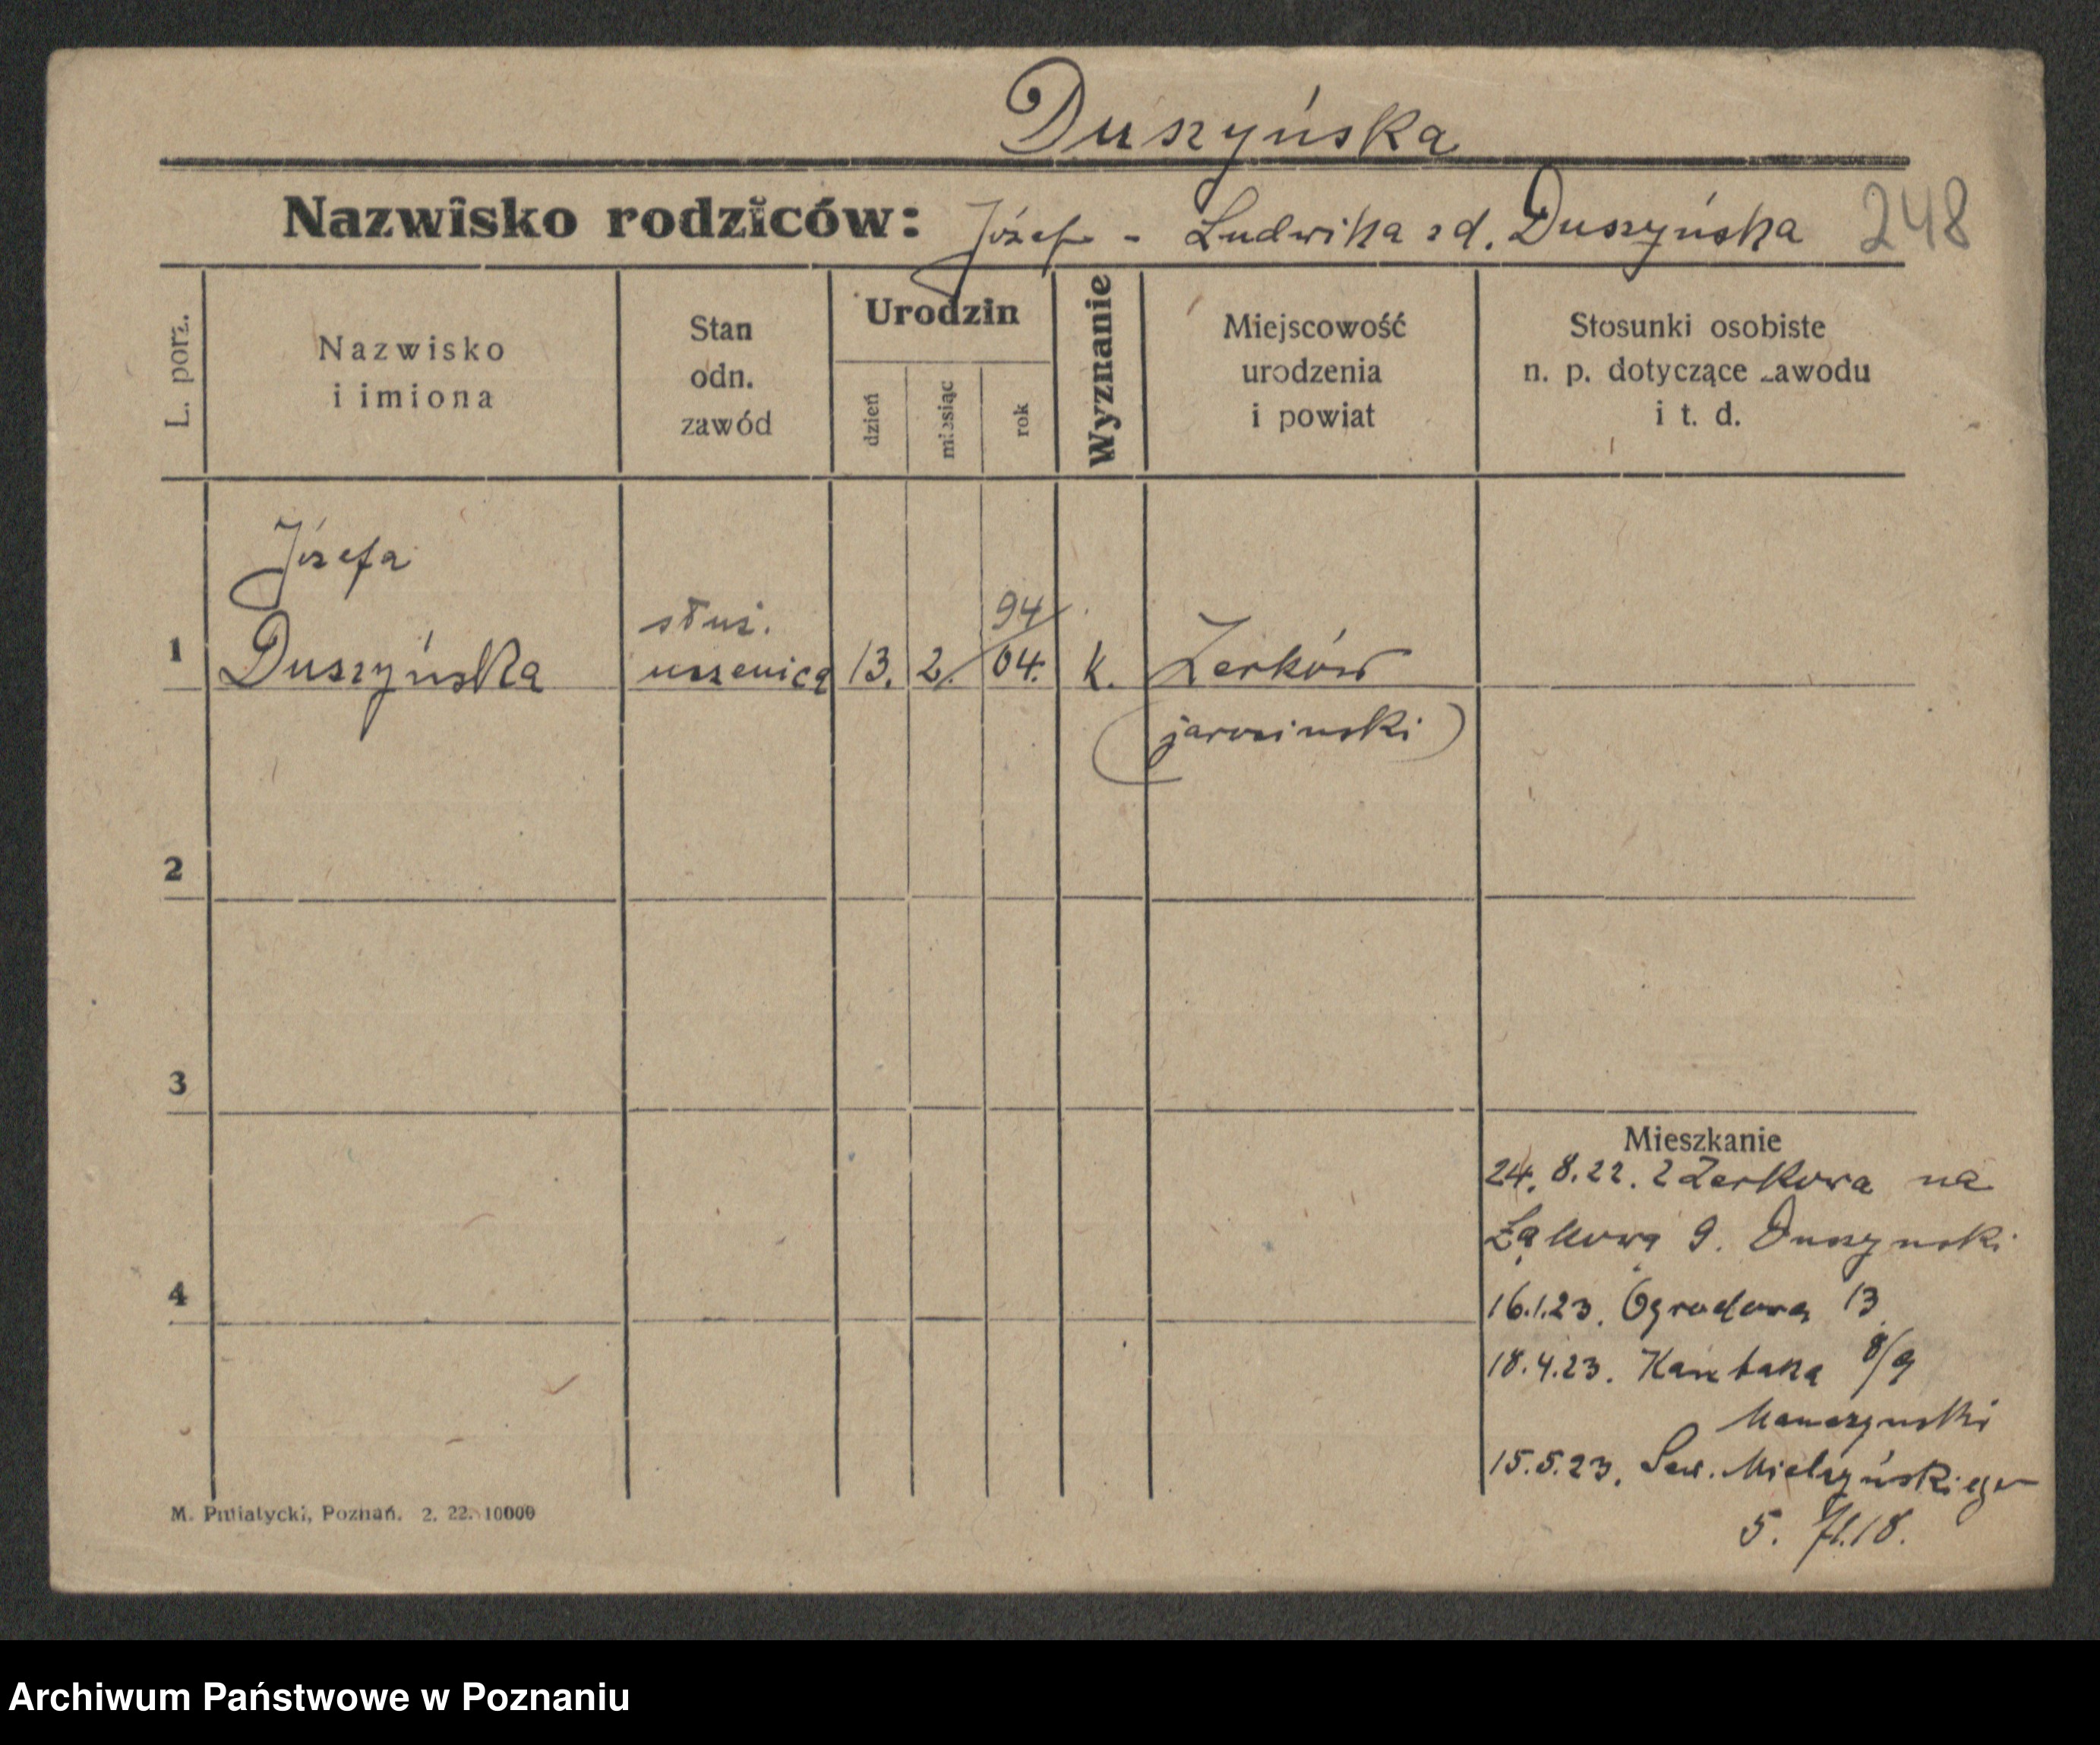 Duszyńska
Nazwisko rodziców: Józef - Ludwika zd. Duszyńska 248
L. porz.
Nazwisko
i imiona
Stan
odn.
zawód
Urodzin
dzień
miesiąc
rok
Wyznanie
Miejscowość
urodzenia
i powiat
Stosunki osobiste
n. p. dotyczące zawodu
i t. d.
Józefa
94
służ.
1 Duszyńska uczenica 13. 2. 04. k. Żerków
(jarociński)
2
3
Mieszkanie
24. 8.22. z Żerkowa na
Łąkową 9. Duszynski
4
16.1.23. Ogrodowa 13
18.4.23. Kantaka 8/9
15.5.23. Sew. Mielżyńskiego
5.
M. Pniatycki, Poznań. 2. 22. 10000
Archiwum Państwowe w Poznaniu